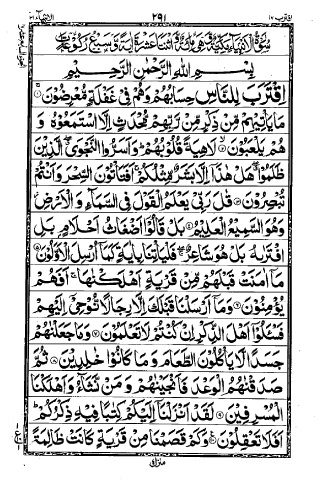 اقترب ١٧ ٢٩١ الانبیآء ٢١
سُوْرَةُ الْاَنْۢبِیَآءِ مَكِّیَّةٌ وَّهِیَ مِائَةٌ وَّاثْنَتَا عَشَرَةَ اٰیَةً وَّسَبْعُ رُكُوْعَاتٍ
بِسْمِ اللّٰهِ الرَّحْمٰنِ الرَّحِیْمِ
اِقْتَرَبَ لِلنَّاسِ حِسَابُهُمْ وَهُمْ فِیْ غَفْلَةٍ مُّعْرِضُوْنَ ۝١
مَا یَاْتِیْهِمْ مِّنْ ذِكْرٍ مِّنْ رَّبِّهِمْ مُّحْدَثٍ اِلَّا اسْتَمَعُوْهُ وَ
هُمْ یَلْعَبُوْنَ ۝٢ لَاهِیَةً قُلُوْبُهُمْ ؕ وَاَسَرُّوا النَّجْوَی ۖ الَّذِیْنَ
ظَلَمُوْا ۖ هَلْ هٰذَاۤ اِلَّا بَشَرٌ مِّثْلُكُمْ ۚ اَفَتَاْتُوْنَ السِّحْرَ وَاَنْتُمْ
تُبْصِرُوْنَ ۝٣ قٰلَ رَبِّیْ یَعْلَمُ الْقَوْلَ فِی السَّمَآءِ وَالْاَرْضِ
وَهُوَ السَّمِیْعُ الْعَلِیْمُ ۝٤ بَلْ قَالُوْۤا اَضْغَاثُ اَحْلَامٍۭ بَلِ
افْتَرٰىهُ بَلْ هُوَ شَاعِرٌ ۖ فَلْیَاْتِنَا بِاٰیَةٍ كَمَاۤ اُرْسِلَ الْاَوَّلُوْنَ ۝٥
مَاۤ اٰمَنَتْ قَبْلَهُمْ مِّنْ قَرْیَةٍ اَهْلَكْنٰهَا ۚ اَفَهُمْ
یُؤْمِنُوْنَ ۝٦ وَمَاۤ اَرْسَلْنَا قَبْلَكَ اِلَّا رِجَالًا نُّوْحِیْۤ اِلَیْهِمْ
فَسْـَٔلُوْۤا اَهْلَ الذِّكْرِ اِنْ كُنْتُمْ لَا تَعْلَمُوْنَ ۝٧ وَمَا جَعَلْنٰهُمْ
جَسَدًا لَّا یَاْكُلُوْنَ الطَّعَامَ وَمَا كَانُوْا خٰلِدِیْنَ ۝٨ ثُمَّ
صَدَقْنٰهُمُ الْوَعْدَ فَاَنْجَیْنٰهُمْ وَمَنْ نَّشَآءُ وَاَهْلَكْنَا
الْمُسْرِفِیْنَ ۝٩ لَقَدْ اَنْزَلْنَاۤ اِلَیْكُمْ كِتٰبًا فِیْهِ ذِكْرُكُمْ ؕ
اَفَلَا تَعْقِلُوْنَ ۝١٠ وَكَمْ قَصَمْنَا مِنْ قَرْیَةٍ كَانَتْ ظَالِمَةً